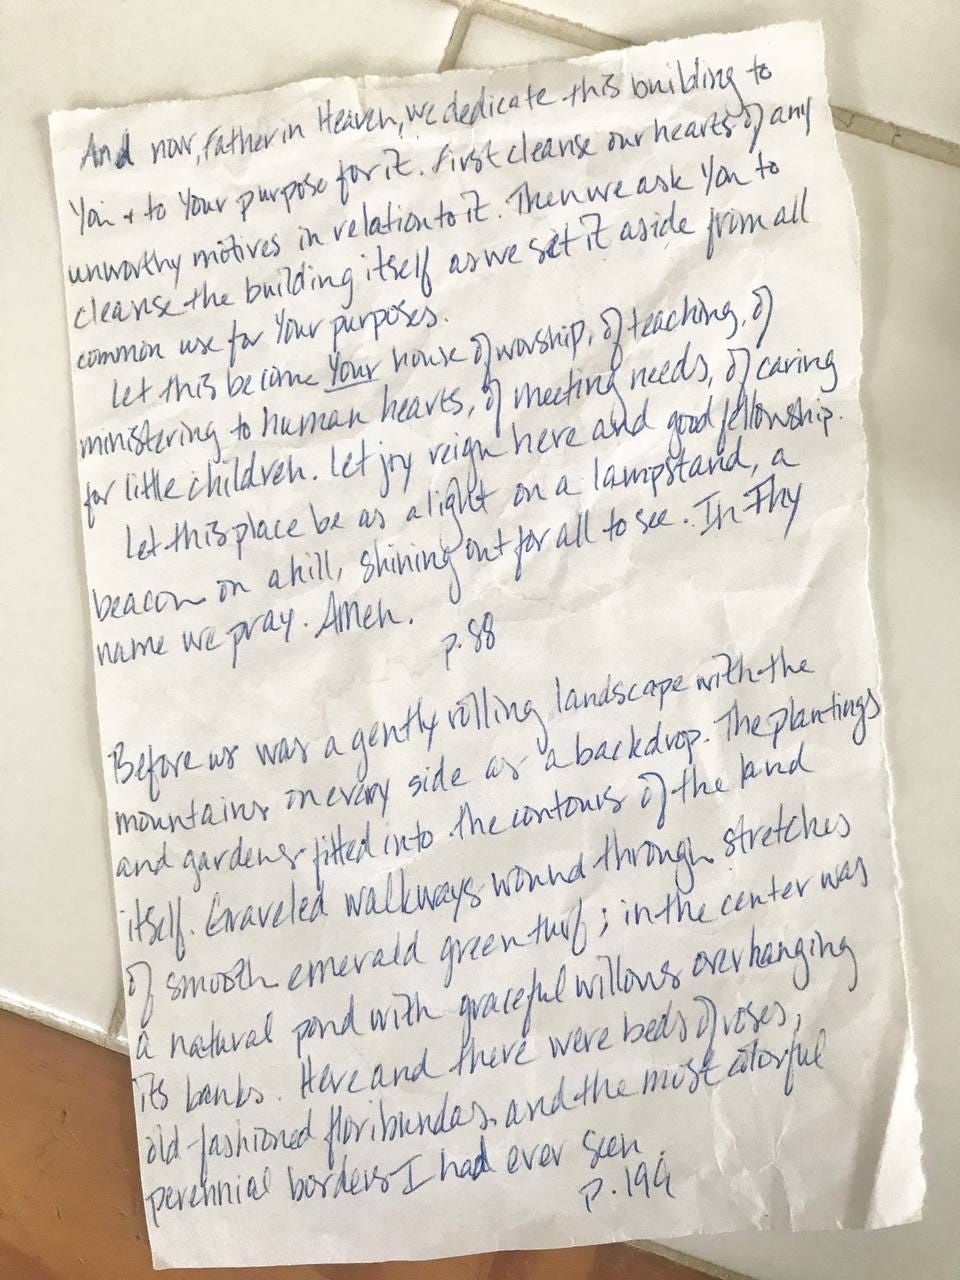 And now, Father in Heaven, we dedicate this building to
You + to Your purpose for it. First cleanse our hearts of any
unworthy motives in relation to it. Then we ask You to
cleanse the building itself as we set it aside from all
common use for Your purposes.
Let this become Your house of worship, of teaching, of
ministering to human hearts, of meeting needs, of caring
for little children. Let joy reign here and good fellowship.
Let this place be as a light on a lampstand, a
beacon on a hill, shining out for all to see. In Thy
name we pray. Amen.
p. 88
Before us was a gently rolling landscape with the
mountains on every side as a backdrop. The plantings
and gardens fitted into the contours of the land
itself. Graveled walkways wound through stretches
of smooth emerald green turf; in the center was
a natural pond with graceful willows overhanging
its banks. Here and there were beds of roses,
old-fashioned floribundas and the most colorful
perennial borders I had ever seen.
p. 199